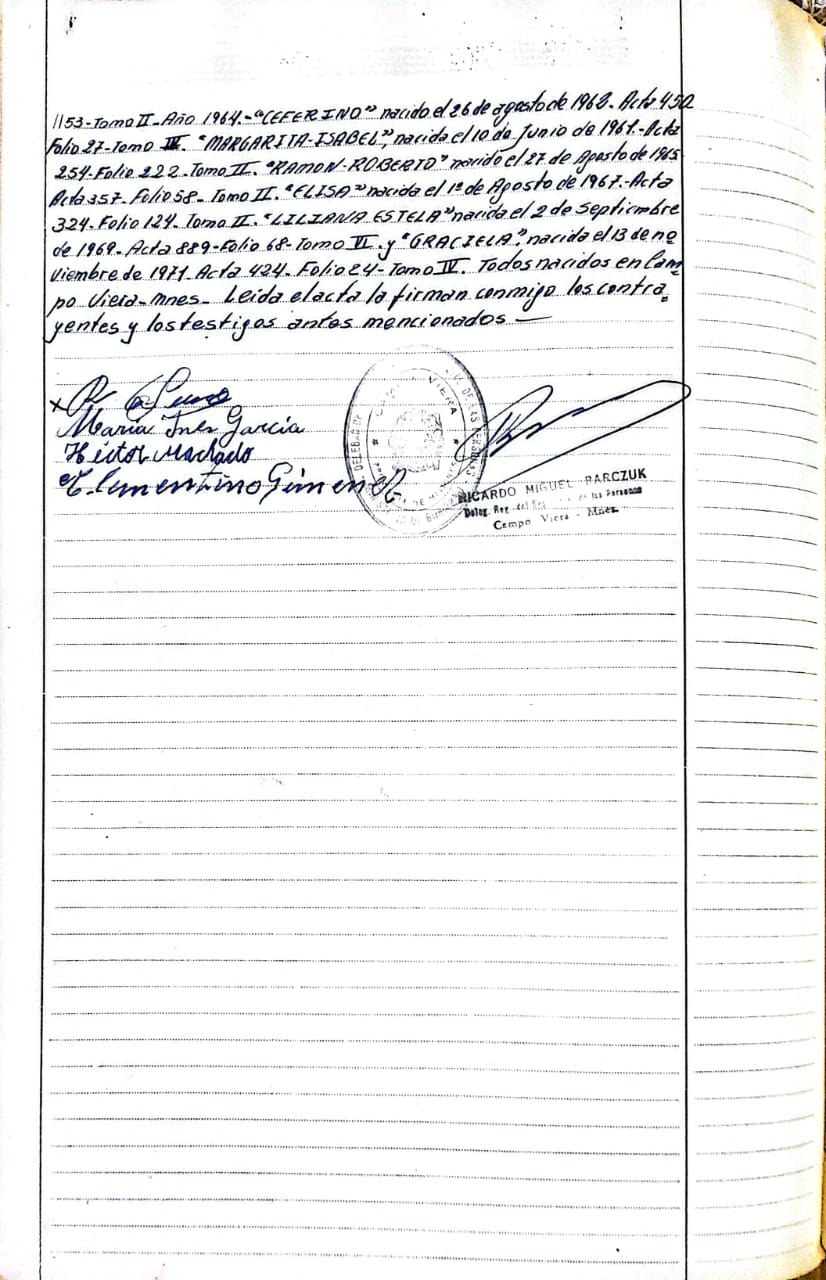 1153-Tomo II-Año 1964.-"CEFERINO" nacido el 26 de agosto de 1963.-Acta 450
Folio 27-Tomo III. "MARGARITA-ISABEL", nacida el 10 de Junio de 1961.-Acta
254-Folio 222-Tomo II. "RAMON-ROBERTO" nacido el 27 de Agosto de 1965
Acta 357-Folio 58-Tomo II. "ELISA" nacida el 1º de Agosto de 1967.-Acta
324-Folio 124-Tomo II. "LILIANA ESTELA" nacida el 2 de Septiembre
de 1969-Acta 889-Folio 68-Tomo VI. y "GRACIELA", nacida el 13 de no
viembre de 1971-Acta 424-Folio 24-Tomo IV. Todos nacidos en Cam
po Viera-Mnes- Leida el acta la firman conmigo los contra
yentes y los testigos antes mencionados —
x
Maria Ines Garcia
Hector Machado
Clementino Gimenez
VIERA
RICARDO MIGUEL BARCZUK
Deleg. Reg. del de las Personas
Campo Viera - Mnes.